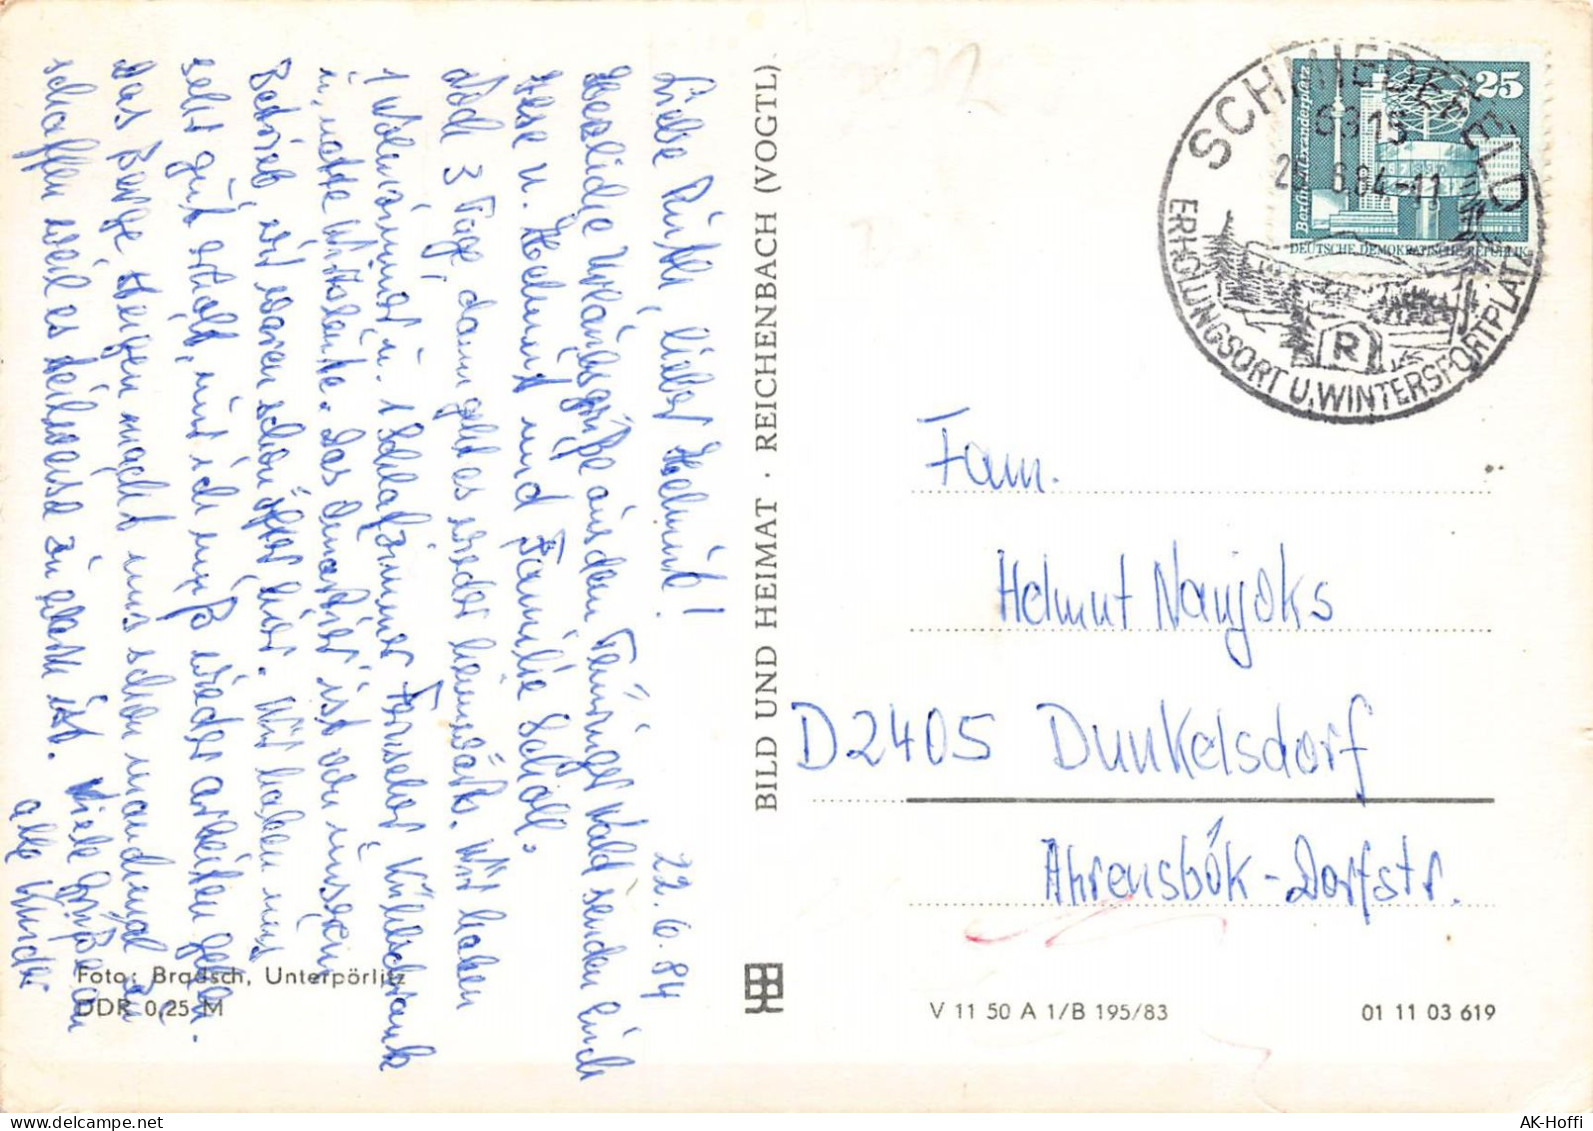 22.6.84
Liebe Ruth, lieber Helmut!
Herzliche Urlaubsgrüße aus dem Thüringer Wald senden Euch
Ilse u. Helmut und Familie Scholl.
Noch 3 Tage, dann geht es wieder heimwärts. Wir haben
1 Wohnzimmer u. 1 Schlafzimmer Fernseher, Kühlschrank
u. nette Wirtsleute. Das Quartier ist von unserem
Betrieb, wir waren schon öfter hier. Wir haben uns
sehr gut erholt, nur ich muß wieder arbeiten gehn.
Das Berge steigen macht uns schon manchmal zu
schaffen weil es teilweise zu stark ist. Viele Grüße von
alle Kinder
Foto: Bradsch, Unterpörlitz
DDR 0,25 M
BILD UND HEIMAT · REICHENBACH (VOGTL)
25
Berlin-Alexanderplatz
DEUTSCHE DEMOKRATISCHE REPUBLIK
SCHMIEDEFELD
6315
6.84-11
ERHOLUNGSORT U. WINTERSPORTPLATZ
R
Fam.
Helmut Naujoks
D2405 Dunkelsdorf
Ahrensbök-Dorfstr.
V 11 50 A 1/B 195/83
01 11 03 619
AK-Hoffi